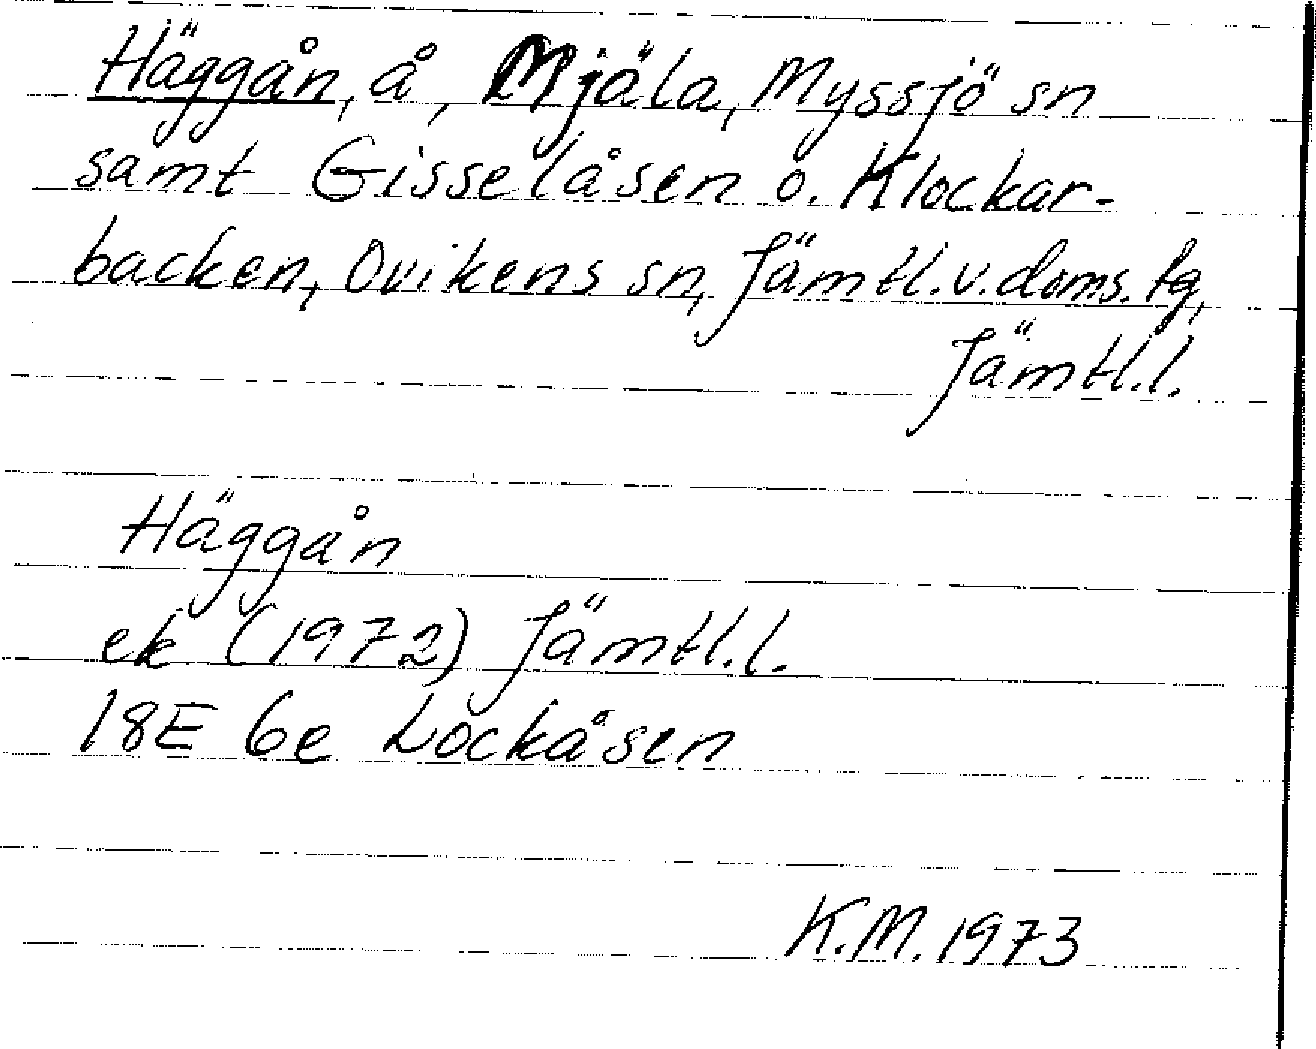 Häggån, å, Mjäla, Myssjö sn
samt Gisselåsen o. Klockar-
backen, Ovikens sn, Jämtl.v.doms.fg,
Jämtl.l.
Häggån
ek (1972) Jämtl.l.
18E 6e Lockåsen
K.M. 1973